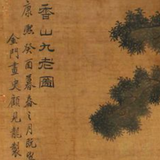 香山九老圖
康熙癸酉暮春之月既望
金門畫史顧見龍製